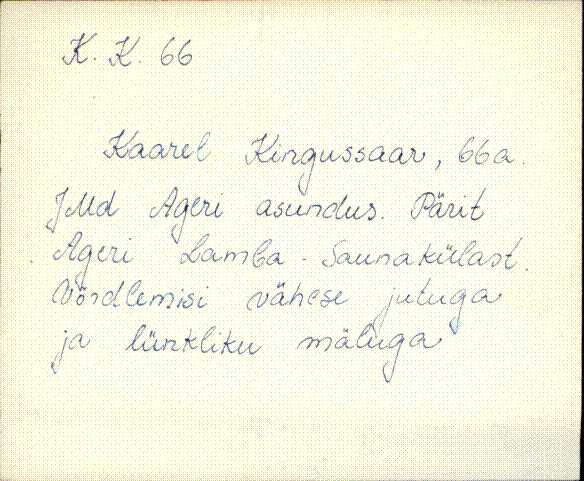 K. K. 66
Kaarel Kingussaar, 66a.
JMd Ageri asundus. Pärit
Ageri Lamba-Saunakülast.
Võrdlemisi vähese jutuga
ja lünkliku mäluga